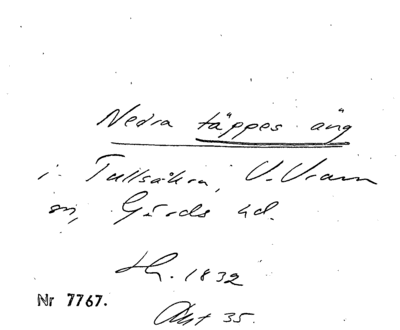 Nedra täppes äng
i Tullsåkra, V. Vram
sn, Gärds hd.
1832
Nr 7767.
Akt 35.